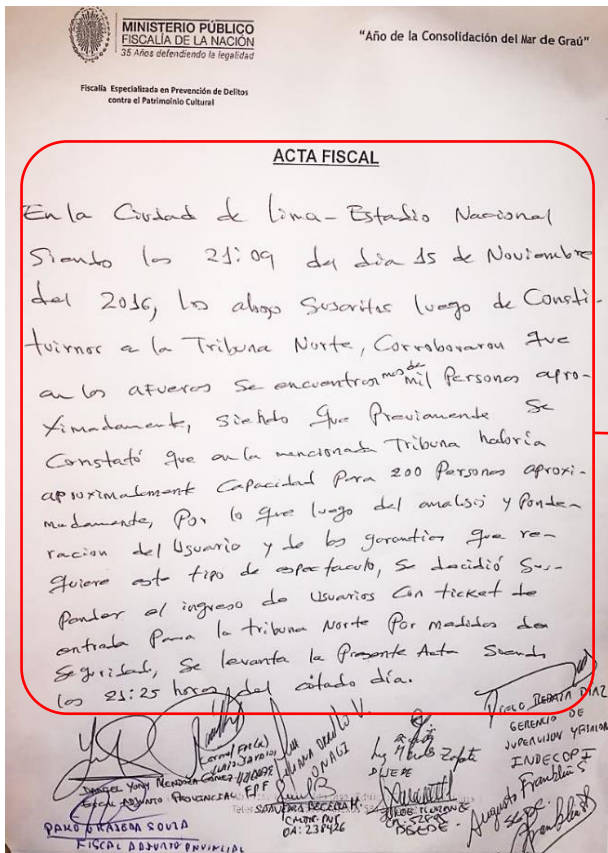 MINISTERIO PÚBLICO
FISCALÍA DE LA NACIÓN
35 Años defendiendo la legalidad
"Año de la Consolidación del Mar de Graú"
Fiscalía Especializada en Prevención de Delitos
contra el Patrimoinio Cultural
ACTA FISCAL
En la Ciudad de Lima - Estadio Nacional
Siendo las 21:09 del día 15 de Noviembre
del 2016, los abajo Suscritos luego de Consti-
tuirnos a la Tribuna Norte, Corroboraron que
en los afueras se encuentran mas de mil Personas apro-
ximadamente, siendo que Previamente Se
Constató que en la mencionada Tribuna habría
aproximadament Capacidad Para 200 Personas aproxi-
madamente, Por lo que luego del analisis y Ponde-
racion del Usuario y de las garantias que re-
quiere este tipo de espectaculo, se decidió Sus-
Pender el ingreso de Usuarios Con ticket de
entrada Para la tribuna Norte Por medidas de
Seguridad, se levanta la Presente Acta Siendo
las 21:25 horas del citado día.
DIAZ
GERENCIA DE
SUPERVISION Y
INDECOPI
MENDOZA
FISCAL ADJUNTO PROVINCIAL FPF
ONAGI
Zapata
SAAVEDRA BECERRA M.
CMDTE. PNP
OA: 238426
Augusto Franklin S
FISCAL ADJUNTO PROVINCIAL